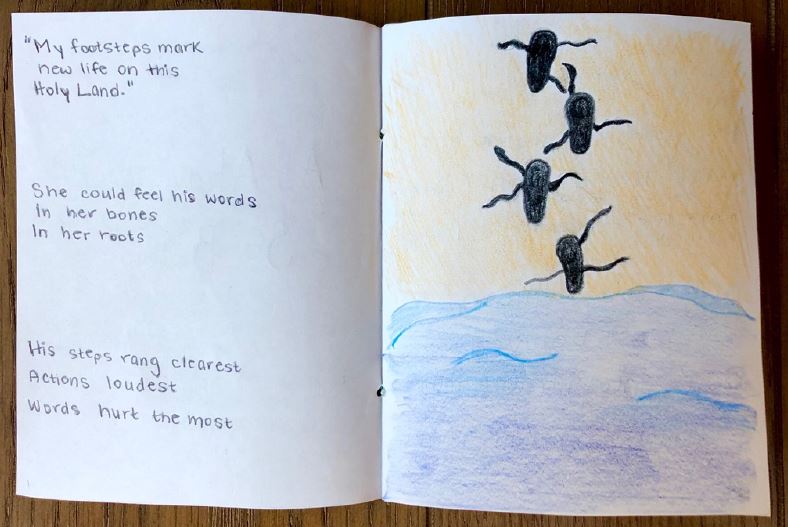 "My footsteps mark
new life on this
Holy Land."
She could feel his words
In her bones
In her roots
His steps rang clearest
Actions loudest
Words hurt the most